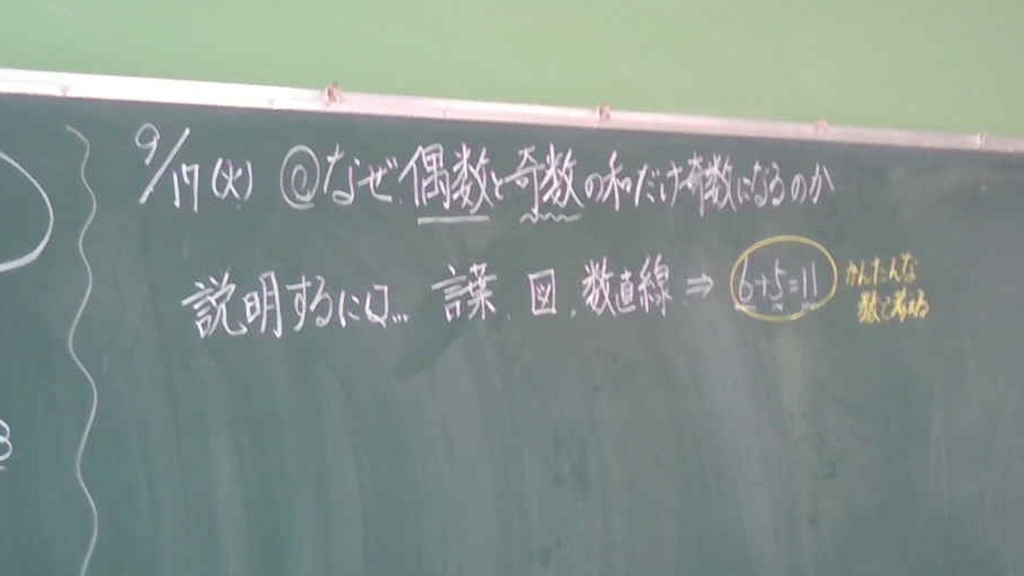 9/17(火) @なぜ偶数と奇数の和だけ奇数になるのか
説明するには… 言葉、図、数直線 ⇒ 6+5=11
かんたんな
数で考える